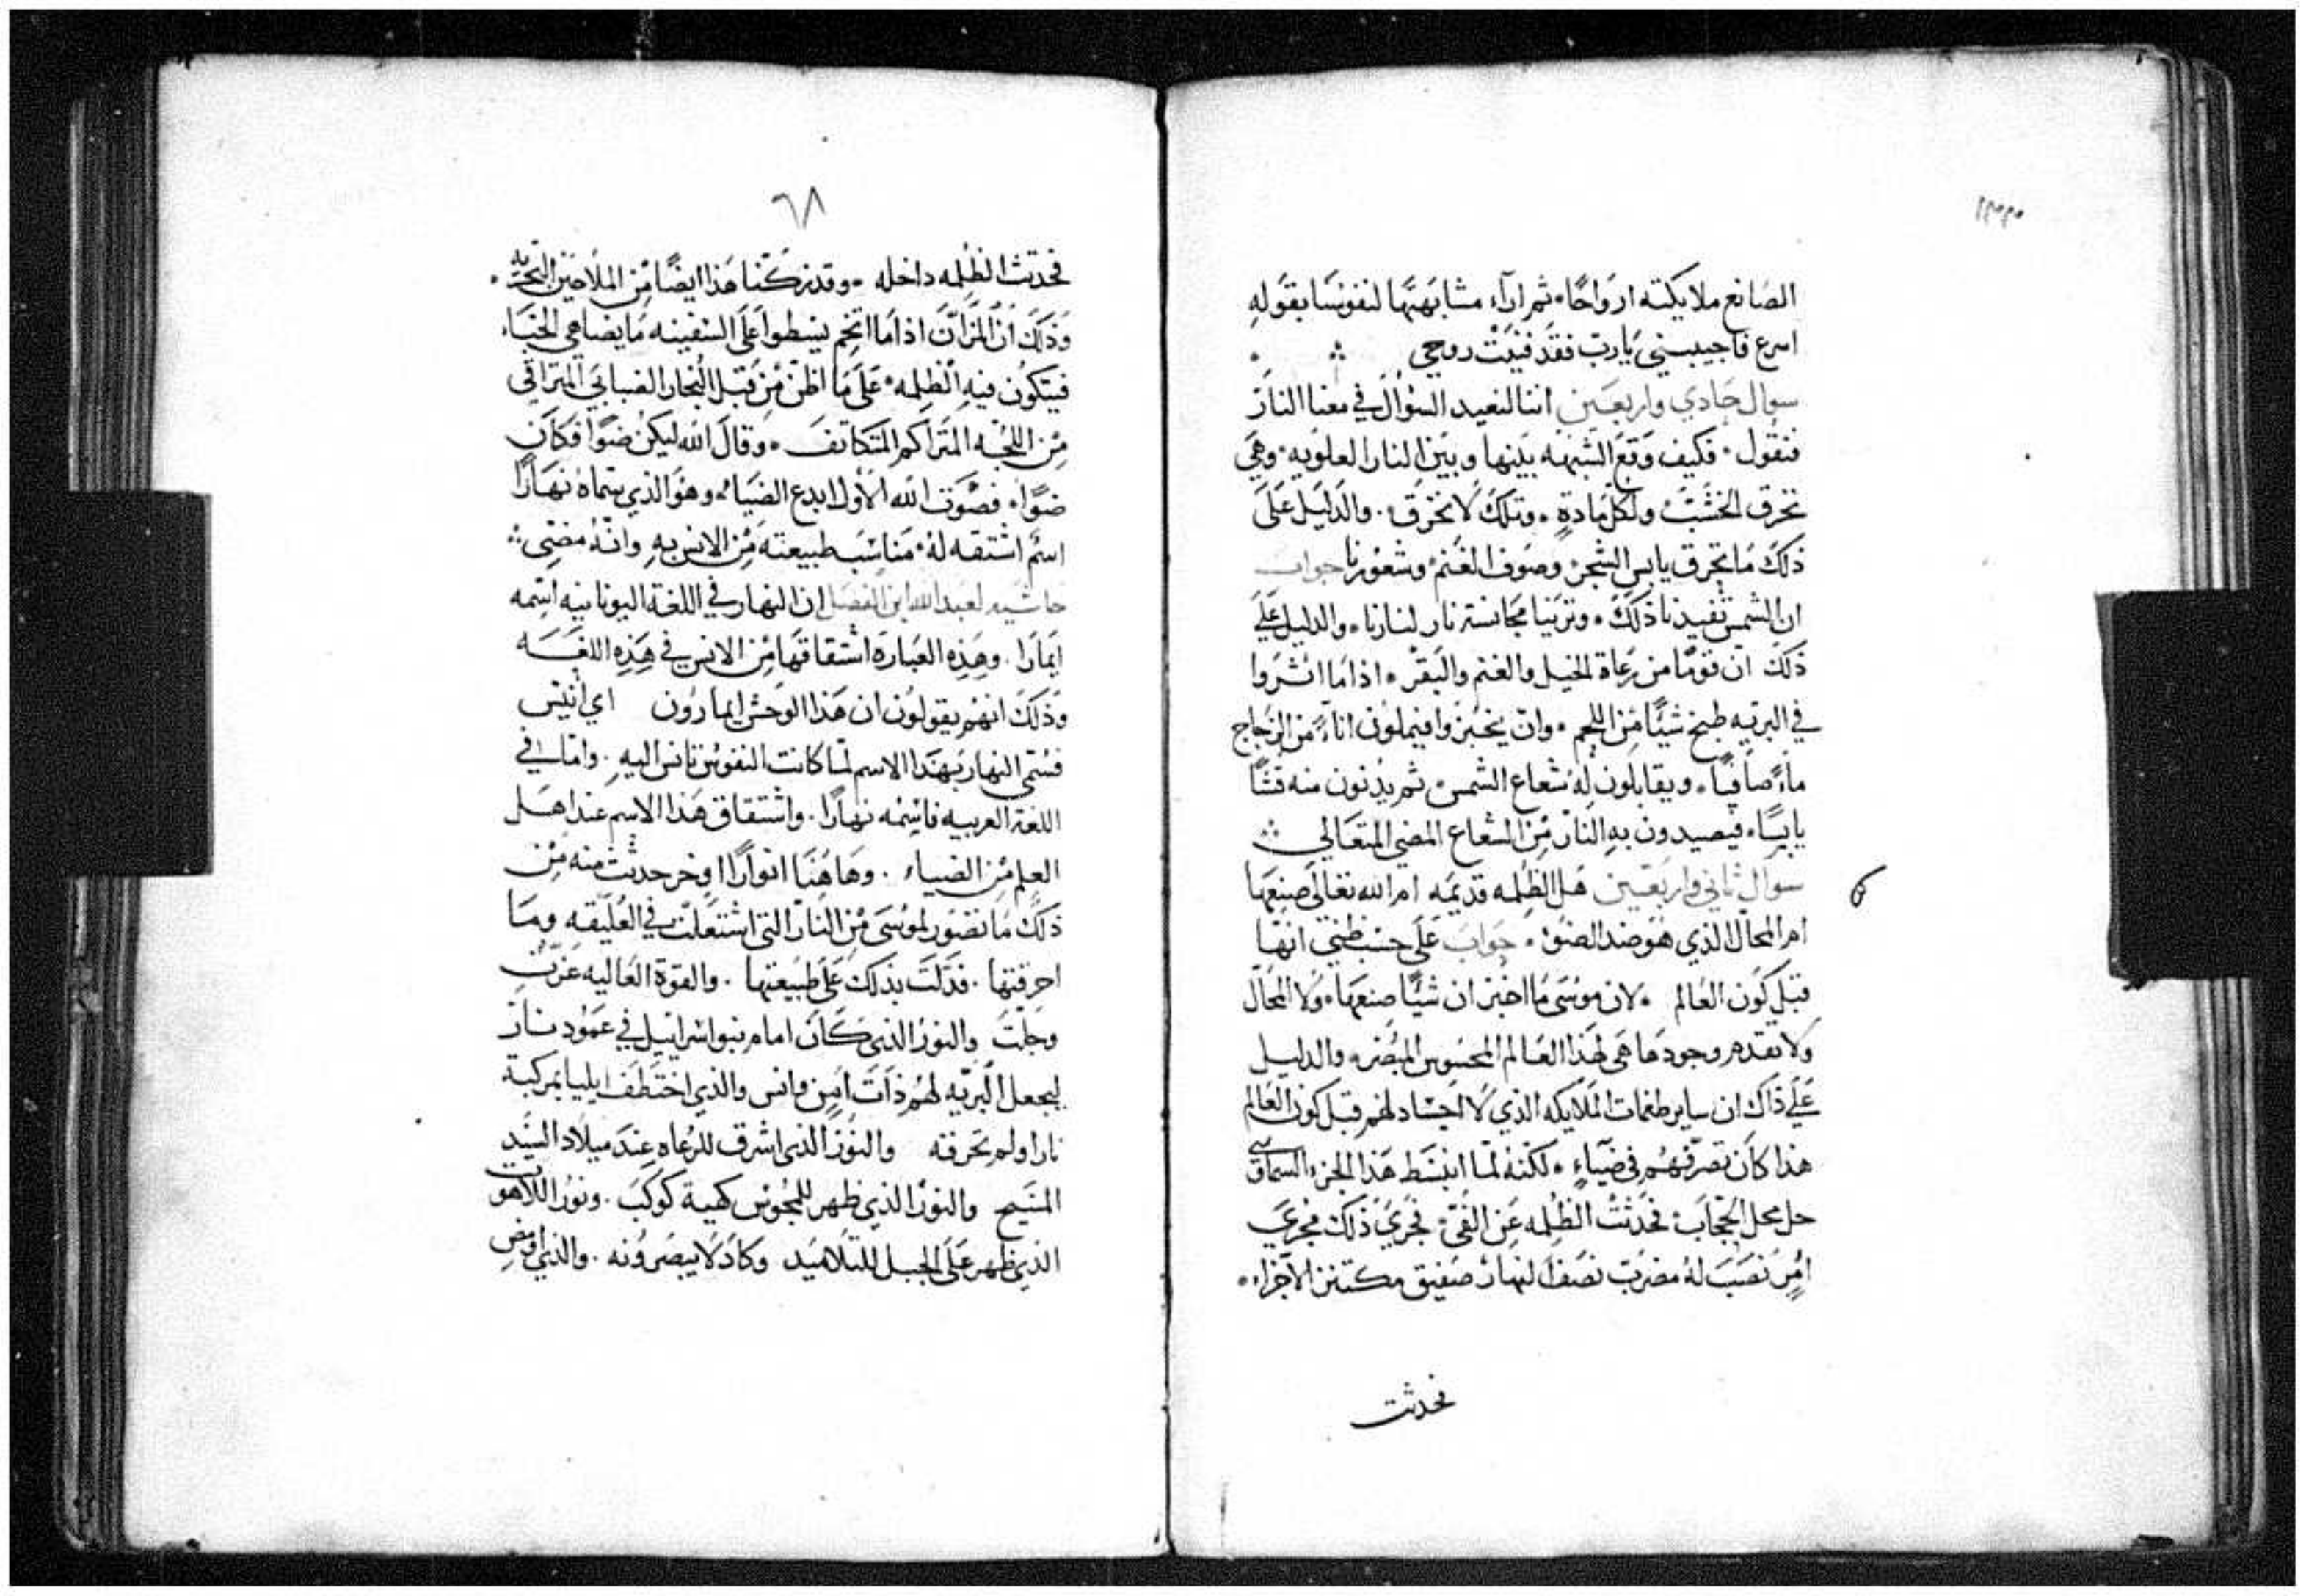 الصَانع ملايكته ارواحًا، ثم ارآء مشابهتها لنفوسَنا بقوله
اسرع فاجيبني يَا رب فقد فنيَت روحي
سوال حَادي واربعَين اننا لنعيد السُوال في معنا النار
فنقول، فكيف وَقعَ الشبهَه بينها وبين النار العلويه، وهَي
تحرق الخشبَ ولكل مَادةٍ، وتلك لا تحرق، والدَليل علَى
ذلك مَا تحرق يابس الشجر، وصوف الغنم، وشعورنا جواب
ان الشمسَ تفيدنا ذلك، وترينا مجانسة نار لنارنا، والدليل علي
ذلك ان قومًا من رعاة الخيل والغنم والبقر، اذا مَا اثروا
في البريه طبخ شيًا من اللحم، وان يخبزوا فيملون انآءً من الزجاج
مآءً صافيًا، ويقابلون له شعاع الشمس، ثم يدنون منه قشًا
يابسًا، فيصيدون به النار من الشعاع المضي المتعَالي
سوال ثاني واربعَين هَل الظلمه قديمَه ام الله تعَالى صنعهَا
ام المحَال الذي هوَ ضد الضوُ، جَواب علَى حسَب ظني انهَا
قبل كون العَالم، لان موسَى مَا اخبر ان شيًا صنعهَا، ولا المحَال
ولا تقدم وجودهَا هَي لهذا العَالم المحسُوس المبُصر، والدليل
علي ذاك ان ساير طغمَات الملايكه الذي لا اجسَاد لهم قبل كون العَالم
هذا كان تصرفهُم في ضيَاءٍ، لكنه لمَا انبسَط هَذا الجزء السمَاوي
حل محل الحجَاب، فحدثت الظلمه عَن الفَي، فجري ذلك مجريَ
امرٍ نصَبَ لهُ مضربَ نصف النهار صَفيق مكتنز الاجزاء،
فحدثت
٦٨
فحدَثت الظلمه داخله، وقد تركنا هَذا ايضًا من الملاحين البَحريه،
وَذلك ان المزان اذا مَا اتخم يسَطوا علَى السَفينه مَا يضاهي الخبَاء
فيَتكون فيه الظلمه، علَى مَا اظن من قبل البُخار الضبَابي المتراقي
من اللجه المتراكم المتكاثف، وَقال الله ليكن ضوًا فكان
ضوًا، فصَوت الله الاول ابدع الضيَاء، وهو الذي سَماهُ نهَارًا
اسمٌ اشتقه لهُ، مَناسَب طبيعته من الانس به، وانهُ مضي
حاشيه لعبد الله ابن الفضل ان النهار في اللغة اليونانيه اسمه
ايمَارا، وهَذه العبَارة اشتقاقهَا من الانس في هَذه اللغَه
وَذلك انهم يقولون ان هَذا الوَحش ايمارون اي انيَس
فسُمي النهار بهَذا الاسم لمَا كانت النفوس تانس اليه، وامَا في
اللغة العربيه فاسمه نهارًا، واشتقاق هَذا الاسم عند اهَل
العلم من الضياء، وهَاهُنَا انوارًا اوخر حدثت منه من
ذلك مَا تصَور لموسَى من النار التي اشتعلت في العُليقه ومَا
احرقتها، فدَلت بذلك علَى طبيعتها، والقوة العَاليه عَزت
وجَلت والنورُ الذي كان امام بنوا اسرائيل في عمَود نار
ليجعل البريه لهُم ذات امن وانس والذي اختطف ايليا بمركبة
نارا ولم تحرقه والنور الذي اشرق للرعاه عندَ ميلاد السَيد
المسَيح والنور الذي ظهر للمجُوس كهية كوكبَ، ونورُ اللاهوت
الذي ظهر علَى الجبل للتلاميد وكادَ لا يبصَرونه، والذي اومض